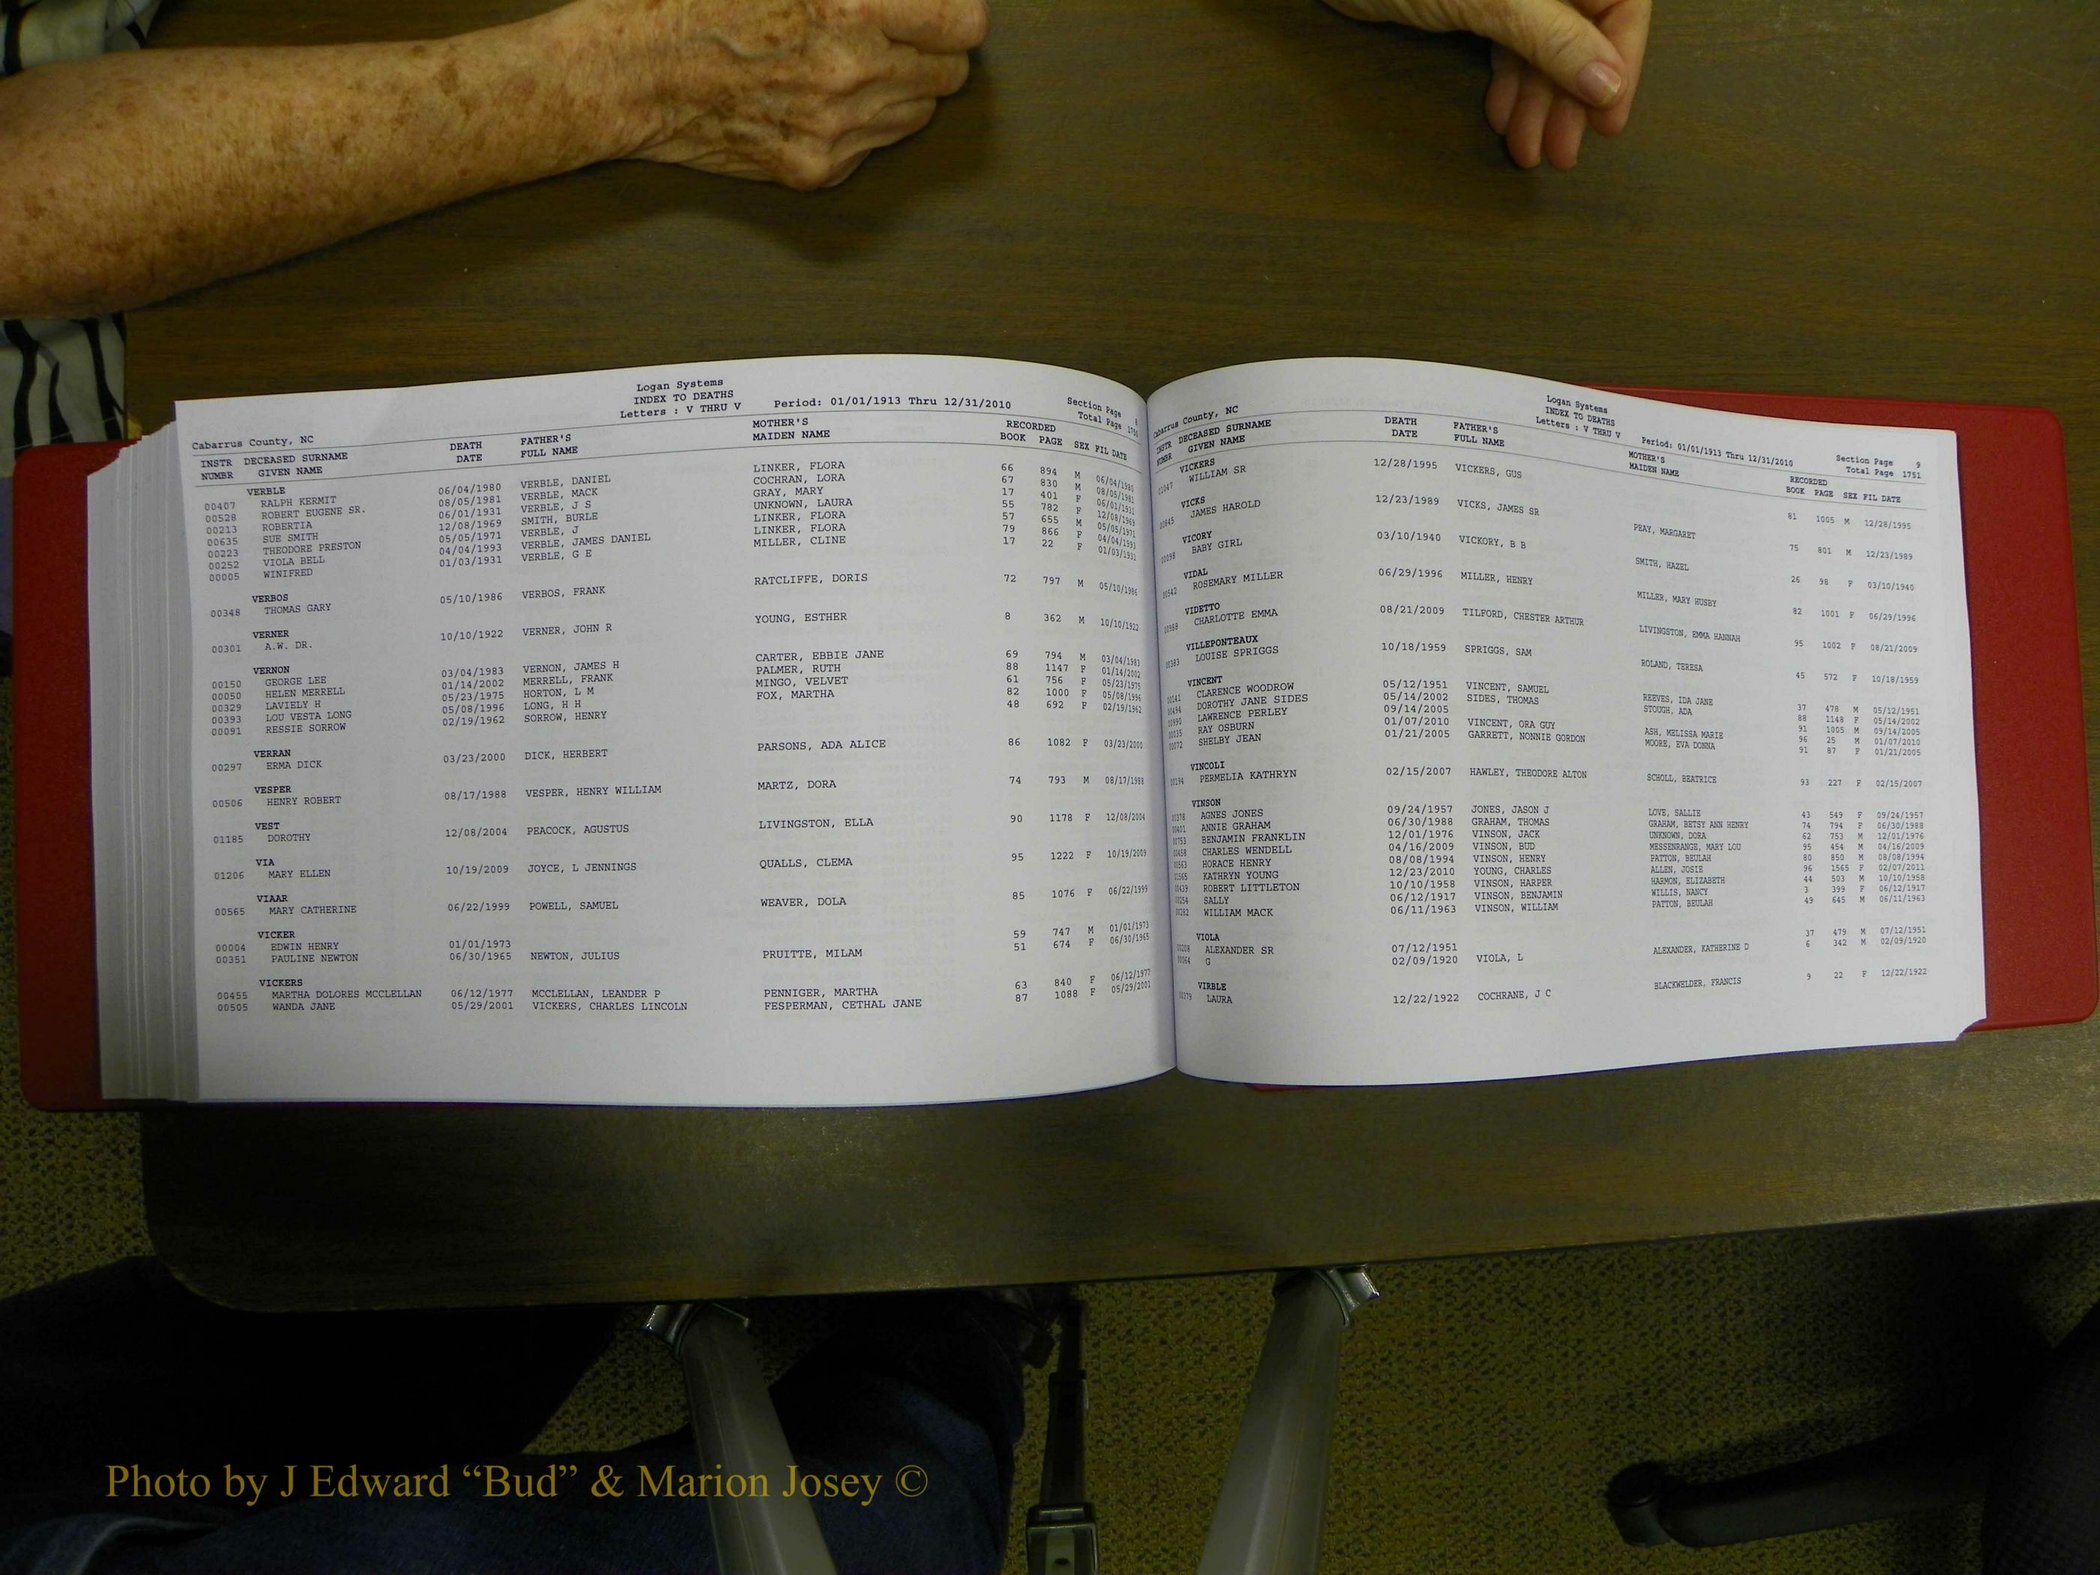 Logan Systems
INDEX TO DEATHS
Letters : V THRU V Period: 01/01/1913 Thru 12/31/2010
Section Page 8
Total Page 1750
Cabarrus County, NC
INSTR DECEASED SURNAME DEATH FATHER'S MOTHER'S RECORDED
NUMBR GIVEN NAME DATE FULL NAME MAIDEN NAME BOOK PAGE SEX FIL DATE
VERBLE
00407 RALPH KERMIT 06/04/1980 VERBLE, DANIEL LINKER, FLORA 66 894 M 06/04/1980
00528 ROBERT EUGENE SR. 08/05/1981 VERBLE, MACK COCHRAN, LORA 67 830 M 08/05/1981
00213 ROBERTIA 06/01/1931 VERBLE, J S GRAY, MARY 17 401 F 06/01/1931
00635 SUE SMITH 12/08/1969 SMITH, BURLE UNKNOWN, LAURA 55 782 F 12/08/1969
00223 THEODORE PRESTON 05/05/1971 VERBLE, J LINKER, FLORA 57 655 M 05/05/1971
00252 VIOLA BELL 04/04/1993 VERBLE, JAMES DANIEL LINKER, FLORA 79 866 F 04/04/1993
00005 WINIFRED 01/03/1931 VERBLE, G E MILLER, CLINE 17 22 F 01/03/1931
VERBOS
00348 THOMAS GARY 05/10/1986 VERBOS, FRANK RATCLIFFE, DORIS 72 797 M 05/10/1986
VERNER
00301 A.W. DR. 10/10/1922 VERNER, JOHN R YOUNG, ESTHER 8 362 M 10/10/1922
VERNON
00150 GEORGE LEE 03/04/1983 VERNON, JAMES H CARTER, EBBIE JANE 69 794 M 03/04/1983
00050 HELEN MERRELL 01/14/2002 MERRELL, FRANK PALMER, RUTH 88 1147 F 01/14/2002
00329 LAVIELY H 05/23/1975 HORTON, L M MINGO, VELVET 61 756 F 05/23/1975
00393 LOU VESTA LONG 05/08/1996 LONG, H H FOX, MARTHA 82 1000 F 05/08/1996
00091 RESSIE SORROW 02/19/1962 SORROW, HENRY 48 692 F 02/19/1962
VERRAN
00297 ERMA DICK 03/23/2000 DICK, HERBERT PARSONS, ADA ALICE 86 1082 F 03/23/2000
VESPER
00506 HENRY ROBERT 08/17/1988 VESPER, HENRY WILLIAM MARTZ, DORA 74 793 M 08/17/1988
VEST
01185 DOROTHY 12/08/2004 PEACOCK, AGUSTUS LIVINGSTON, ELLA 90 1178 F 12/08/2004
VIA
01206 MARY ELLEN 10/19/2009 JOYCE, L JENNINGS QUALLS, CLEMA 95 1222 F 10/19/2009
VIAAR
00565 MARY CATHERINE 06/22/1999 POWELL, SAMUEL WEAVER, DOLA 85 1076 F 06/22/1999
VICKER
00004 EDWIN HENRY 01/01/1973 59 747 M 01/01/1973
00351 PAULINE NEWTON 06/30/1965 NEWTON, JULIUS PRUITTE, MILAM 51 674 F 06/30/1965
VICKERS
00455 MARTHA DOLORES MCCLELLAN 06/12/1977 MCCLELLAN, LEANDER P PENNIGER, MARTHA 63 840 F 06/12/1977
00505 WANDA JANE 05/29/2001 VICKERS, CHARLES LINCOLN FESPERMAN, CETHAL JANE 87 1088 F 05/29/2001
Logan Systems
INDEX TO DEATHS
Letters : V THRU V Period: 01/01/1913 Thru 12/31/2010
Section Page 9
Total Page 1751
Cabarrus County, NC
INSTR DECEASED SURNAME DEATH FATHER'S MOTHER'S RECORDED
NUMBR GIVEN NAME DATE FULL NAME MAIDEN NAME BOOK PAGE SEX FIL DATE
VICKERS
01047 WILLIAM SR 12/28/1995 VICKERS, GUS PEAY, MARGARET 81 1005 M 12/28/1995
VICKS
00845 JAMES HAROLD 12/23/1989 VICKS, JAMES SR SMITH, HAZEL 75 801 M 12/23/1989
VICORY
00098 BABY GIRL 03/10/1940 VICKORY, B B MILLER, MARY HUSBY 26 98 F 03/10/1940
VIDAL
00542 ROSEMARY MILLER 06/29/1996 MILLER, HENRY LIVINGSTON, EMMA HANNAH 82 1001 F 06/29/1996
VIDETTO
00988 CHARLOTTE EMMA 08/21/2009 TILFORD, CHESTER ARTHUR ROLAND, TERESA 95 1002 F 08/21/2009
VILLEPONTEAUX
00383 LOUISE SPRIGGS 10/18/1959 SPRIGGS, SAM 45 572 F 10/18/1959
VINCENT
00141 CLARENCE WOODROW 05/12/1951 VINCENT, SAMUEL REEVES, IDA JANE 37 478 M 05/12/1951
00494 DOROTHY JANE SIDES 05/14/2002 SIDES, THOMAS STOUGH, ADA 88 1148 F 05/14/2002
00990 LAWRENCE PERLEY 09/14/2005 91 1005 M 09/14/2005
00035 RAY OSBURN 01/07/2010 VINCENT, ORA GUY ASH, MELISSA MARIE 96 25 M 01/07/2010
00072 SHELBY JEAN 01/21/2005 GARRETT, NONNIE GORDON MOORE, EVA DONNA 91 87 F 01/21/2005
VINCOLI
00194 PERMELIA KATHRYN 02/15/2007 HAWLEY, THEODORE ALTON SCHOLL, BEATRICE 93 227 F 02/15/2007
VINSON
00378 AGNES JONES 09/24/1957 JONES, JASON J LOVE, SALLIE 43 549 F 09/24/1957
00401 ANNIE GRAHAM 06/30/1988 GRAHAM, THOMAS GRAHAM, BETSY ANN HENRY 74 794 F 06/30/1988
00753 BENJAMIN FRANKLIN 12/01/1976 VINSON, JACK UNKNOWN, DORA 62 753 M 12/01/1976
00458 CHARLES WENDELL 04/16/2009 VINSON, BUD MESSENRANGE, MARY LOU 95 454 M 04/16/2009
00563 HORACE HENRY 08/08/1994 VINSON, HENRY PATTON, BEULAH 80 850 M 08/08/1994
01565 KATHRYN YOUNG 12/23/2010 YOUNG, CHARLES ALLEN, JOSIE 96 1565 F 02/07/2011
00439 ROBERT LITTLETON 10/10/1958 VINSON, HARPER HARMON, ELIZABETH 44 503 M 10/10/1958
00254 SALLY 06/12/1917 VINSON, BENJAMIN WILLIS, NANCY 3 399 F 06/12/1917
00282 WILLIAM MACK 06/11/1963 VINSON, WILLIAM PATTON, BEULAH 49 645 M 06/11/1963
VIOLA
00208 ALEXANDER SR 07/12/1951 37 479 M 07/12/1951
00064 G 02/09/1920 VIOLA, L ALEXANDER, KATHERINE D 6 342 M 02/09/1920
VIRBLE
00279 LAURA 12/22/1922 COCHRANE, J C BLACKWELDER, FRANCIS 9 22 F 12/22/1922
Photo by J Edward “Bud” & Marion Josey ©